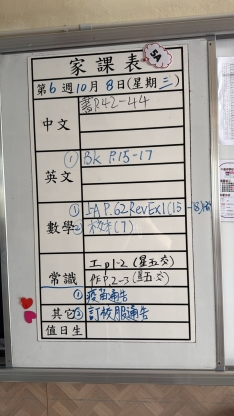 家課表
5A
第6週10月8日(星期三)
中文 書P.42-44
英文 ① BK P.15-17
數學 ① 5A P.62RevEx1(15-18)
② (7)
常識 工p1-2 (星五交)
P.2-3 (星五交)
其它 ① 疫苗通告
② 訂校服通告
值日生